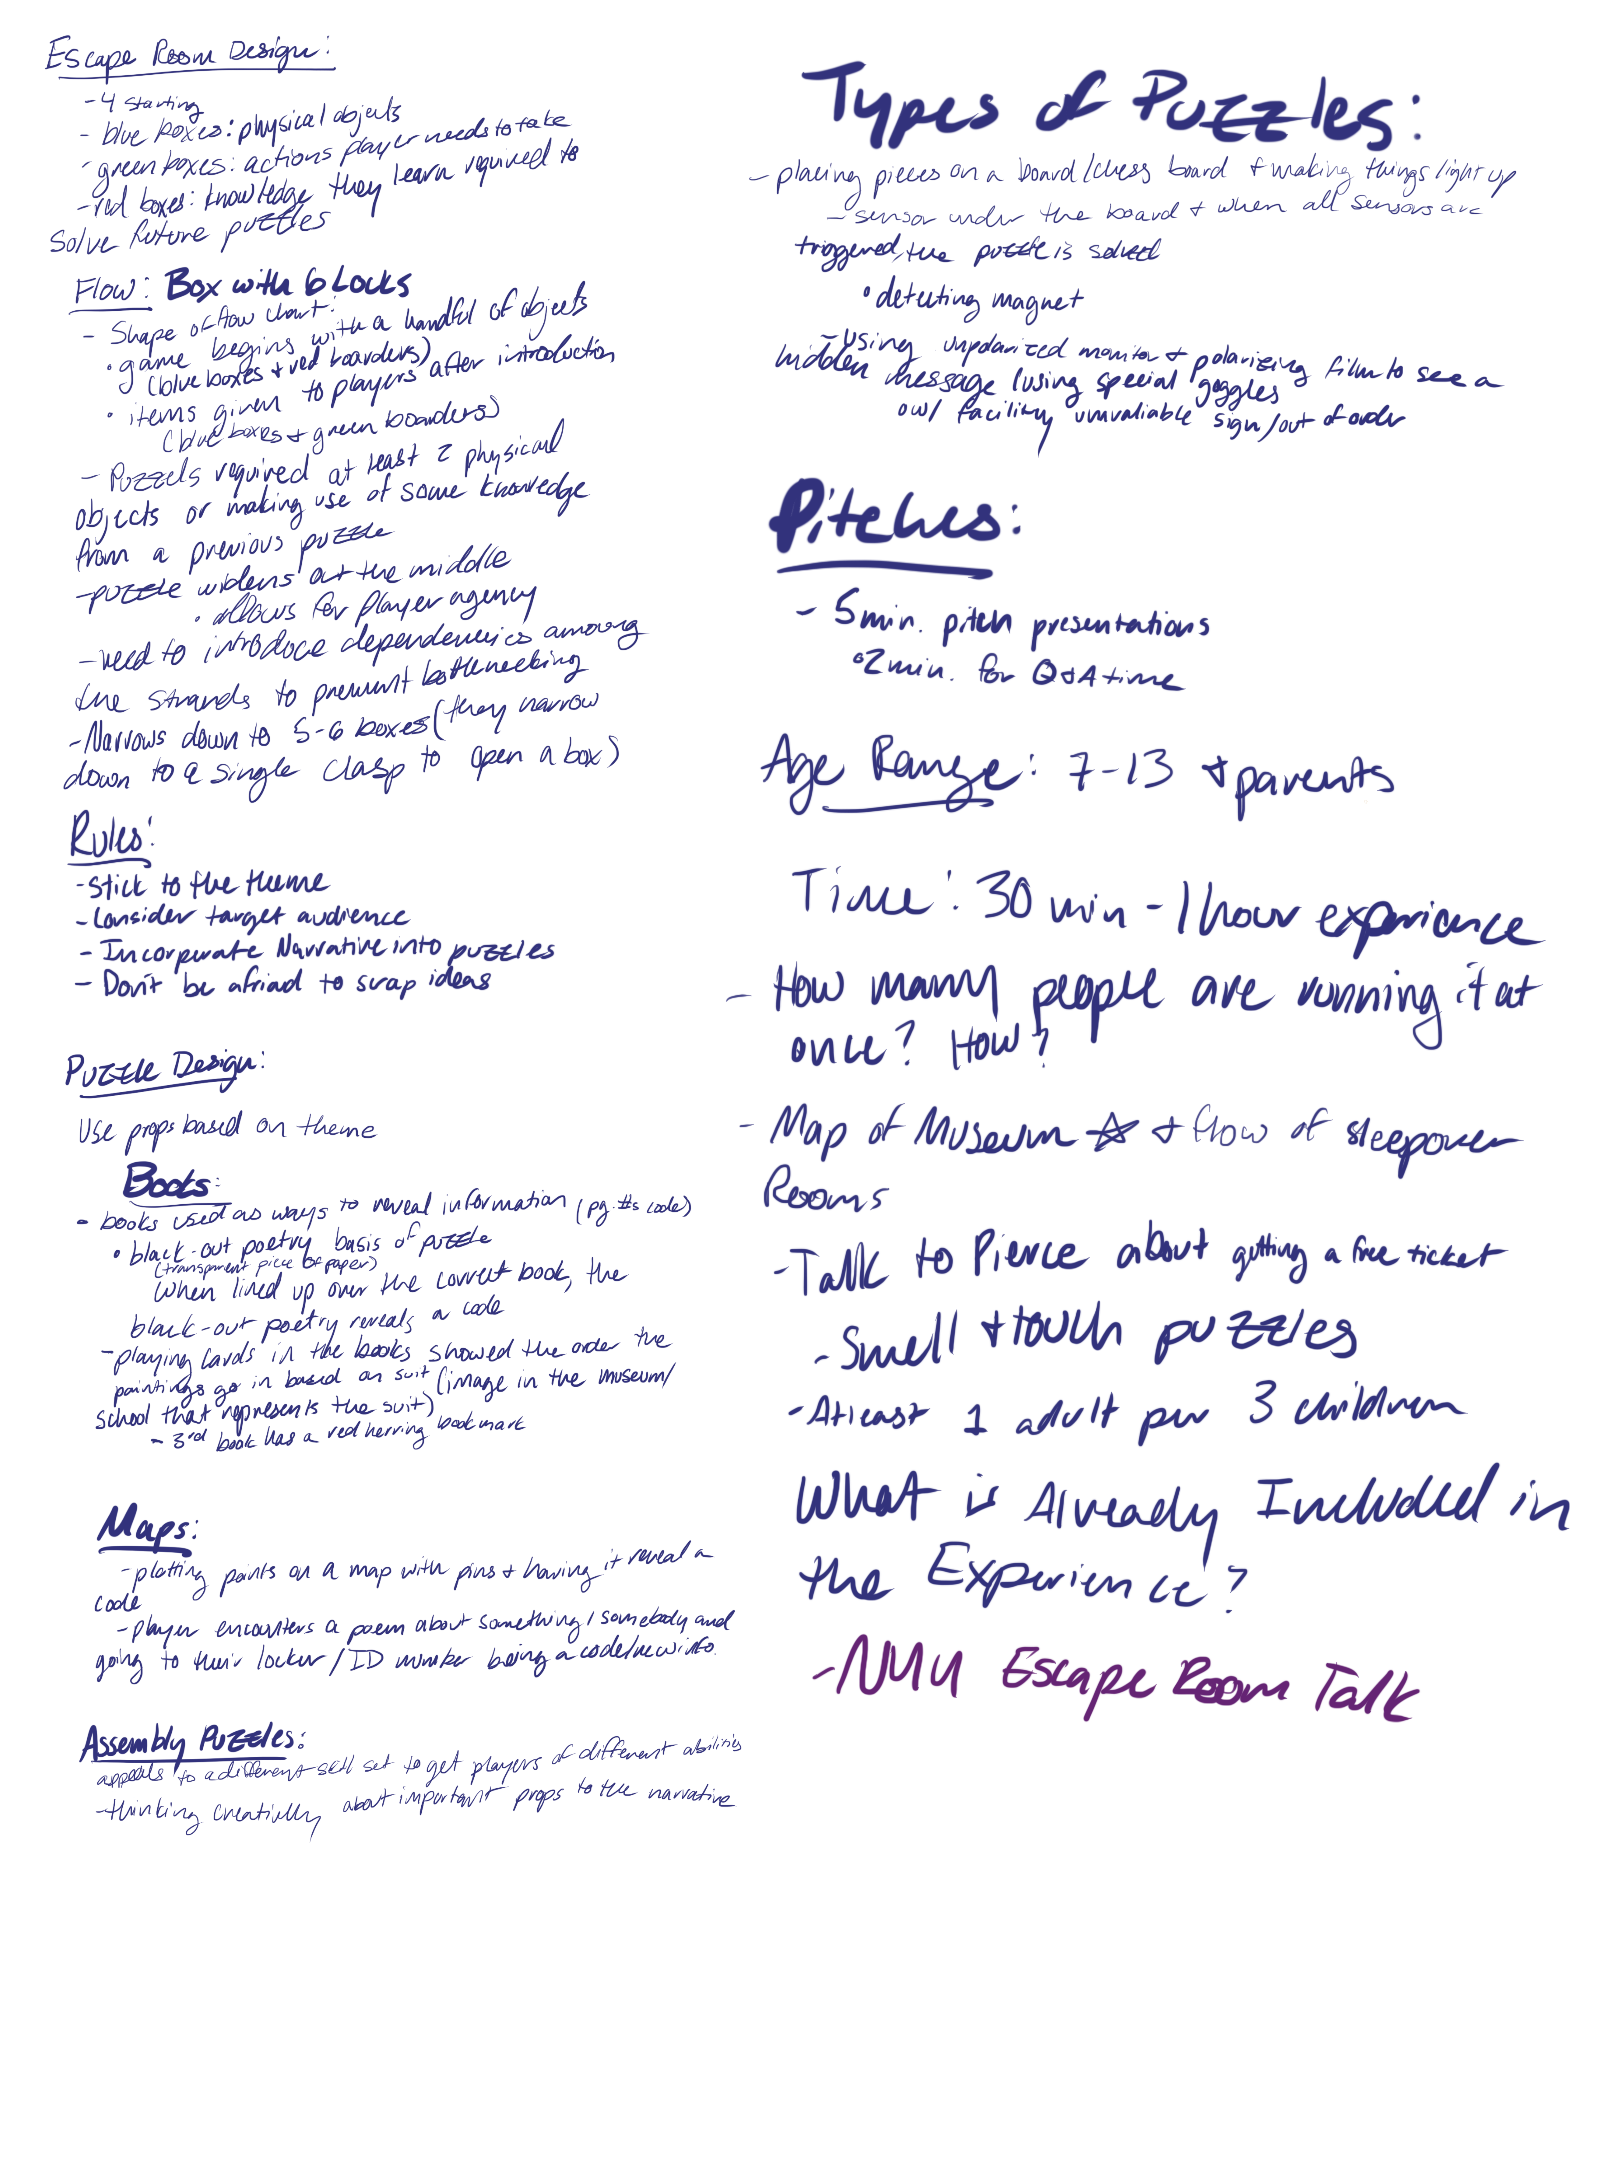 Escape Room Design:
- 4 starting
- blue boxes: physical objects
- green boxes: actions player needs to take
- red boxes: knowledge they learn required to
solve future puzzles
Flow: Box with 6 Locks
- Shape of flow chart:
• game begins with a handful of objects
(blue boxes + red boarders)
• items given to players after introduction
(blue boxes + green boarders)
- Puzzels required at least 2 physical
objects or making use of some knowledge
from a previous puzzle
- puzzle widens out the middle
• allows for player agency
- need to introduce dependencies among
the strands to prevent bottlenecking
- Narrows down to 5-6 boxes (they narrow
down to a single clasp to open a box)
Rules:
- stick to the theme
- Consider target audience
- Incorporate Narrative into puzzles
- Don't be afriad to scrap ideas
Puzzle Design:
Use props based on theme
Books:
- books used as ways to reveal information (pg. #s code)
• black-out poetry basis of puzzle
(transparent piece of paper)
when lined up over the correct book, the
black-out poetry reveals a code
- playing cards in the books showed the order the
paintings go in based on suit (image in the museum/
school that represents the suit)
- 3rd book has a red herring bookmark
Maps:
- plotting points on a map with pins + having it reveal a
code
- player encounters a poem about something/somebody and
going to their locker/ID number being a code/new info.
Assembly Puzzles:
appeals to a different skill set to get players of different abilities
- thinking creatively about important props to the narrative
Types of Puzzles:
- placing pieces on a board/chess board + making things light up
- sensor under the board + when all sensors are
triggered, the puzzle is solved
• detecting magnet
- using unpolarized monitor + polarizing film to see a
hidden message (using special goggles
ow/ facility unavaliable sign/out of order
Pitches:
- 5 min. pitch presentations
• 2 min. for Q&A time
Age Range: 7-13 + parents
Time: 30 min - 1 hour experience
- How many people are running it at
once? How?
- Map of Museum ☆ + flow of sleepover
Rooms
- Talk to Pierce about getting a free ticket
- Smell + touch puzzles
- Atleast 1 adult per 3 children
What is Already Included in
the Experience?
- NMU Escape Room Talk